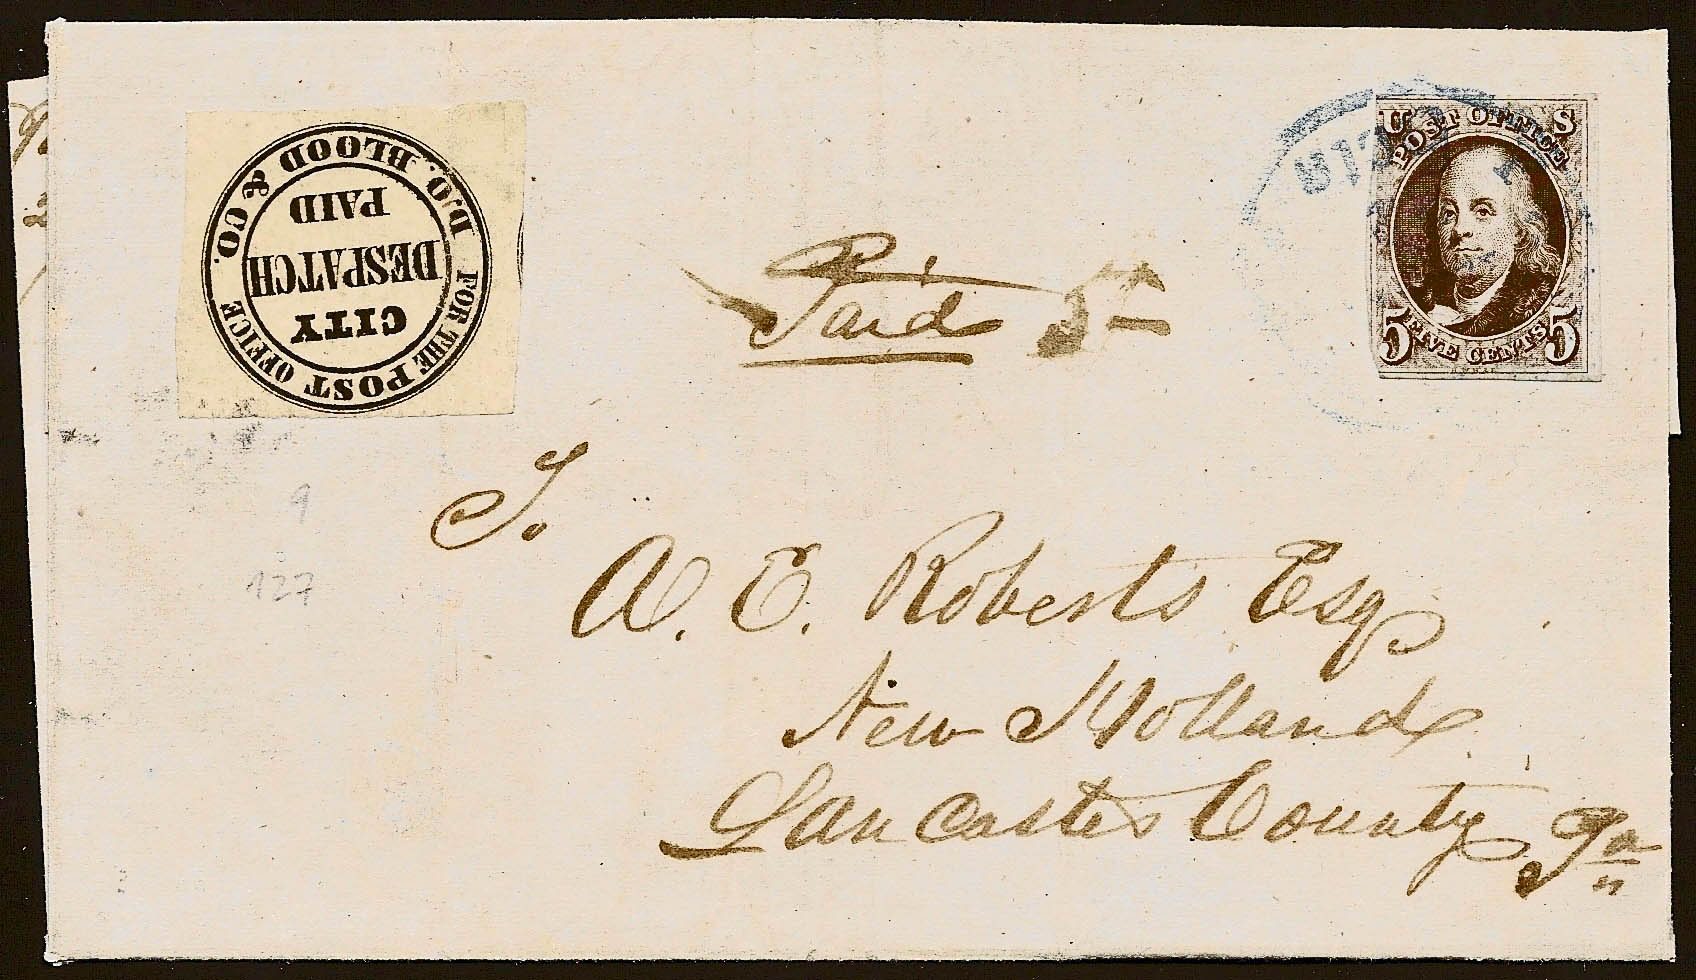 D.O. BLOOD & CO.
FOR THE POST OFFICE
CITY
DESPATCH
PAID
Paid 5
U S
POST OFFICE
5 FIVE CENTS 5
To
A. E. Roberts Esq
New Holland
Lancaster County Pa
9
127